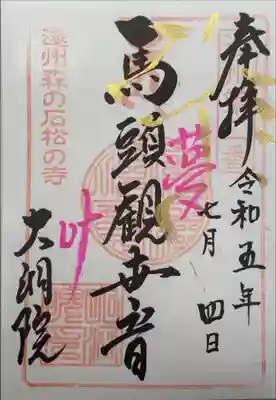 奉拝
令和五年
七月 四日
馬頭観世音
夢
叶
遠州森の石松の寺
大洞院